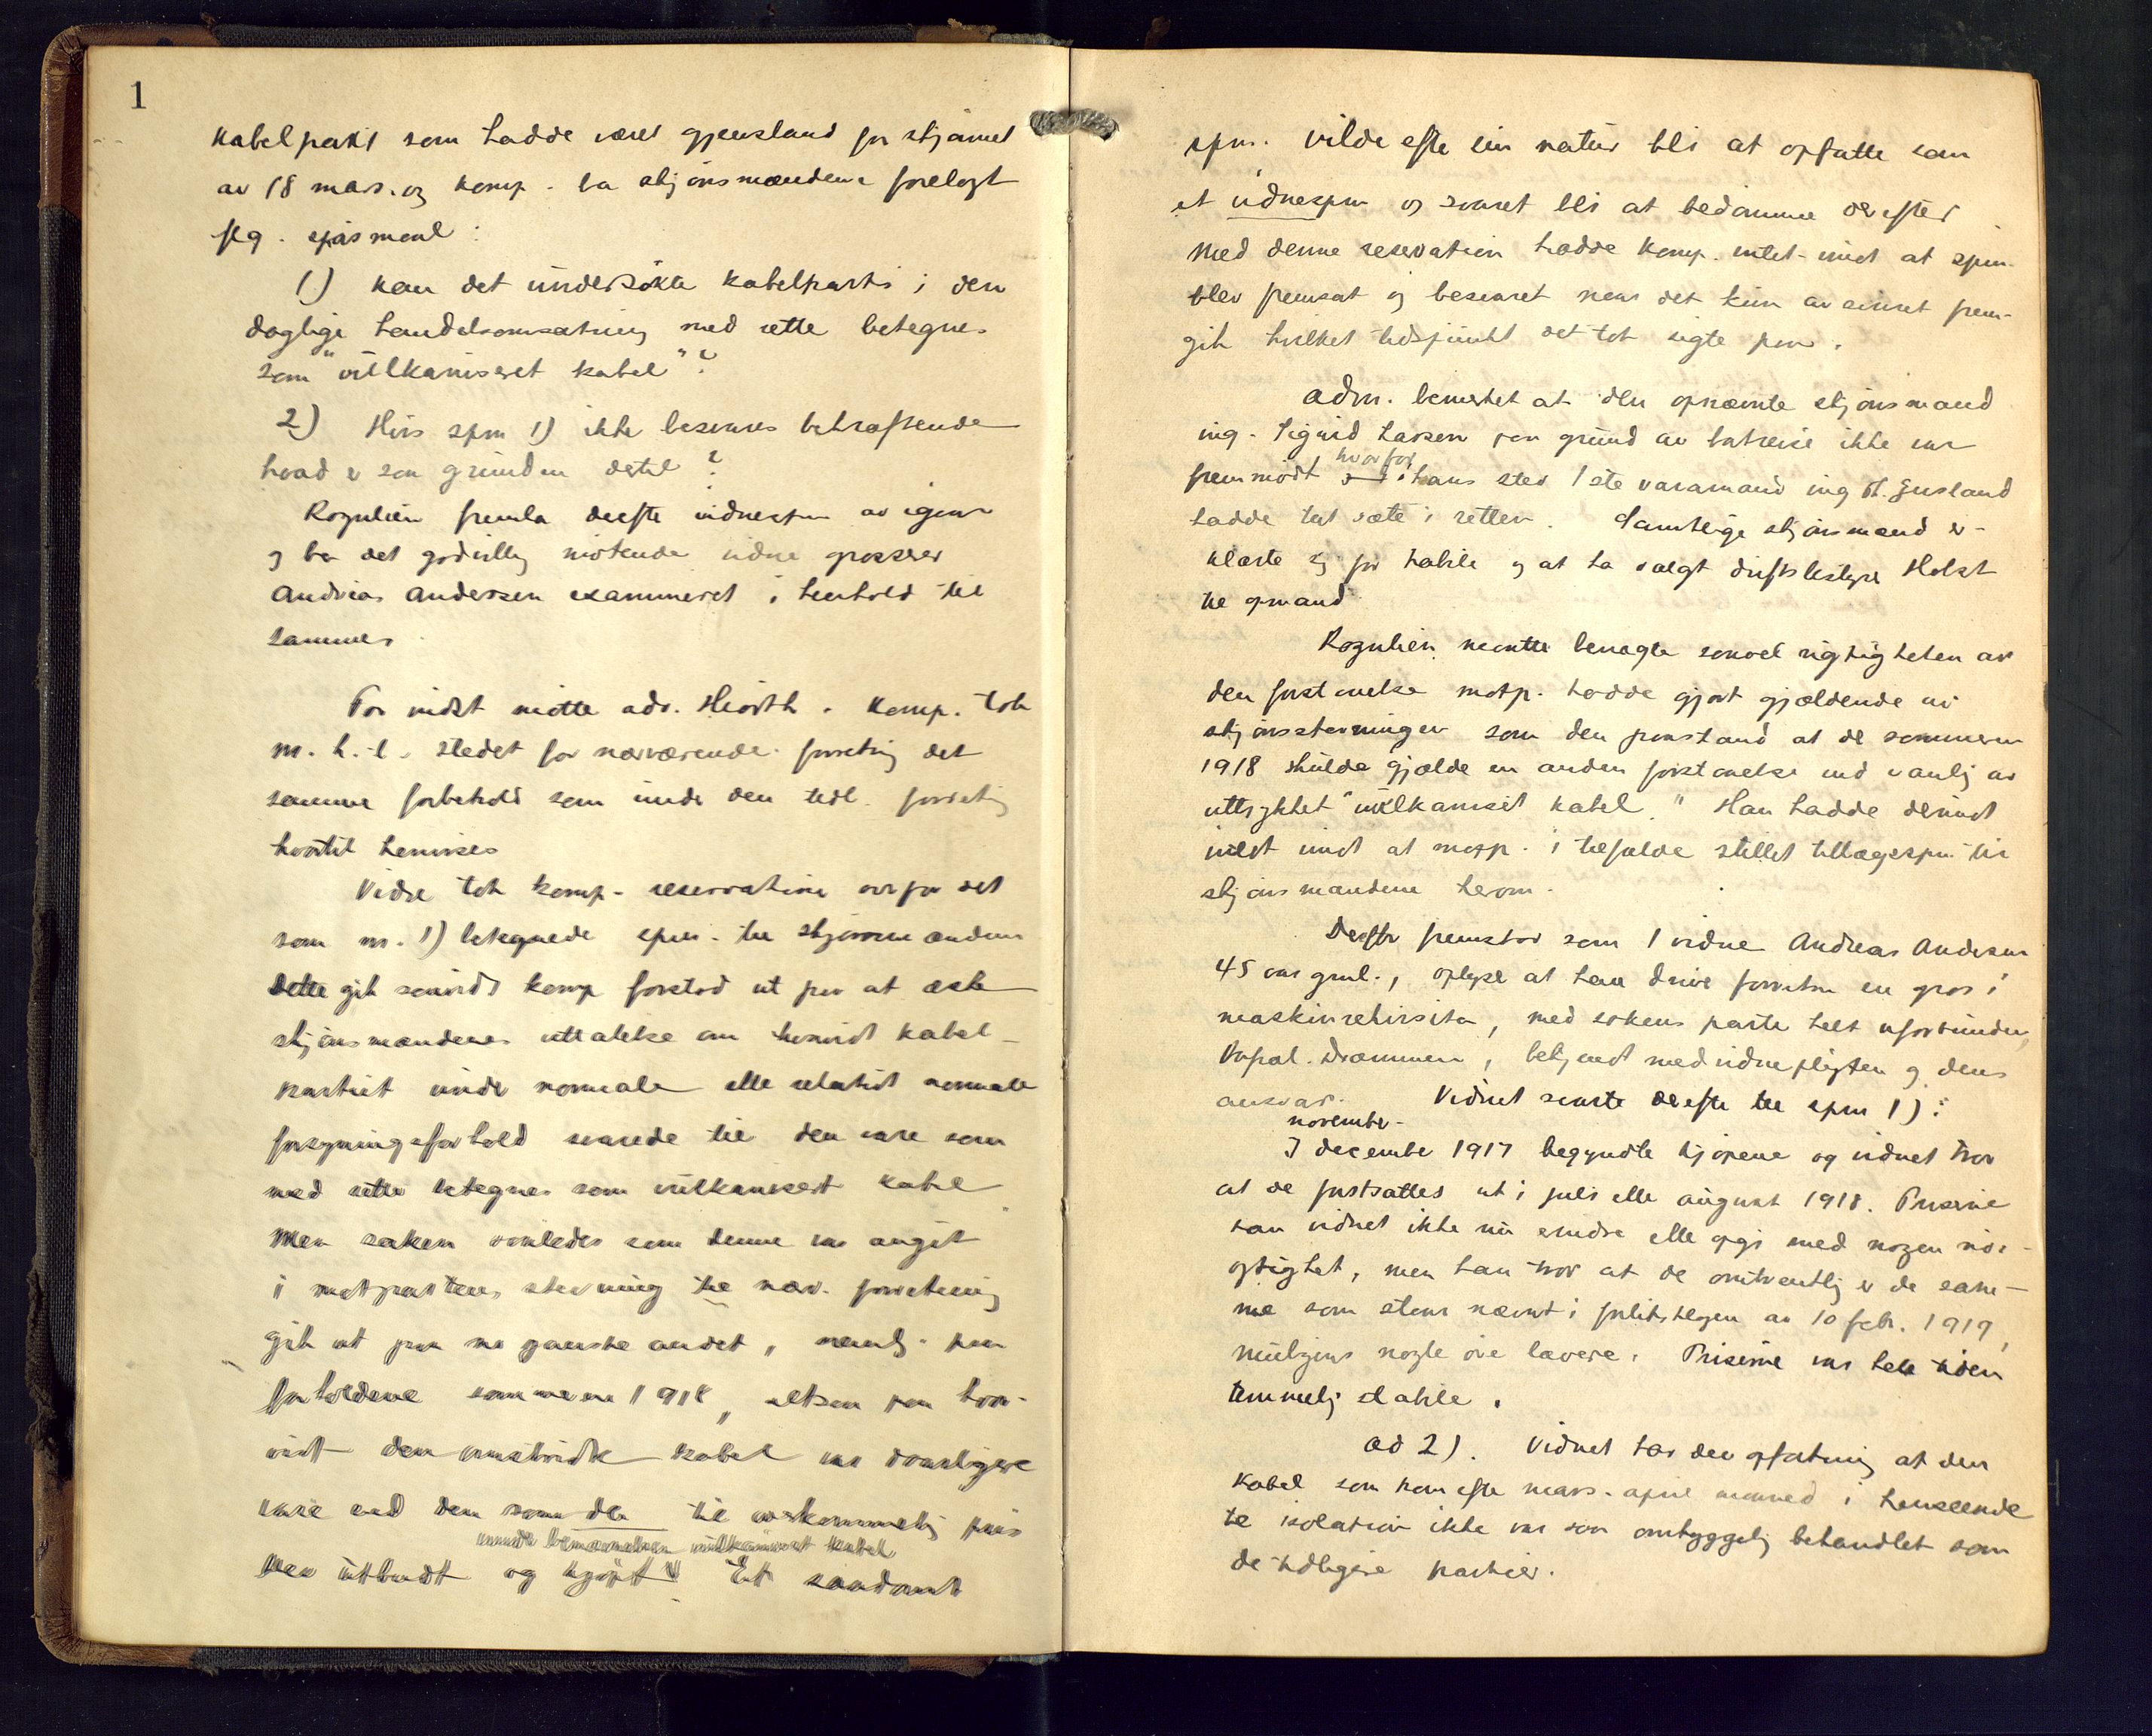 1
Kabelparti som hadde været gjenstand for skjønnet
av 18 mars. og komp. ba skjönsmændene forelagt
flg. spörsmaal:
1) Kan det undersökte kabelparti i den
daglige handelsomsætning med rette betegnes
som "vulkaniseret kabel"?
2) Hvis spm 1) ikke besvares bekræftende
hvad er saa grunden dertil?
Rognlien fremla derefter vidnespm av igaar
og ba det godvillig møtende vidne grosserer
Andreas Andersen examineret i henhold til
sammes
For indst mötte adv. Hiorth. Komp. tok
m. h. t. stedet for nærværende forretning det
samme forbehold som under den tidl. forretning
hvortil henvises
Videre tok komp. reservation overfor det
som nr. 1) betegnede spm. til skjönsmændene
Dette gik saavidt komp forstod ut paa at æske
skjönsmændenes uttalelse om hvorvidt kabel-
partiet under normale eller relativt normale
forsyningsforhold svarede til den vare som
med rette betegnes som vulkaniseret kabel
Men saken saaledes som denne var angit
i motpartens stevning til nærv. forretning
gik ut paa no ganske andet, nemlig paa
forholdene sommeren 1918, altsaa paa hvor-
vidt den omstridte kabel var daarligere
vare end den som da til overkommelig pris
under benævnelsen vulkaniseret kabel
blev utbudt og kjöpt. Et saadant
spm. vilde efter sin natur bli at opfatte som
et vidnespm og svaret bli at bedömme derefter
Med denne reservation hadde komp. intet imot at spm.
blev fremsat og besvaret naar det kun av svaret frem-
gik hvilket tidspunkt det tok sigte paa.
Adm. bemerket at den opnævnte skjönsmand
ing. Sigurd Larsen paa grund av bortreise ikke var
fremmött hvorfor i hans sted 1ste varamand ing
hadde tat sæte i retten. Samtlige skjönsmænd er-
klærte sig for habile og at ha valgt driftsbestyrer Holst
til opmand
Rognlien maatte benægte saavel rigtigheten av
den forstaaelse motp. hadde gjort gjældende av
skjönsstevningen som den paastand at der sommeren
1918 skulde gjælde en anden forstaaelse end vanlig av
uttrykket "vulkaniseret kabel." Han hadde derimot
intet imot at motp. i tilfælde stillet tillægsspm. til
skjönsmændene herom.
Derefter fremstod som 1 vidne Andreas Andersen
45 aar gml., oplyser at han driver forretn en gros i
maskinrekvisita, med sakens parter helt uforbunden,
bopæl. Drammen, bekjendt med vidnepligten og dens
ansvar. Vidnet svarte derefter til spm 1):
november-
I december 1917 begyndte kjöpene og vidnet tror
at de fortsattes ut i juli eller august 1918. Priserne
kan vidnet ikke nu erindre eller opgi med nogen nöi-
agtighet, men han tror at de omtrentlig er de sam-
me som staar nævnt i av 10 febr. 1919,
muligens nogle öre lavere. Priserne var hele tiden
temmelig stabile.
ad 2). Vidnet har den opfatning at den
kabel som kom efter mars-april maaned i henseende
til isolation ikke var saa omhyggelig behandlet som
de tidligere partier.